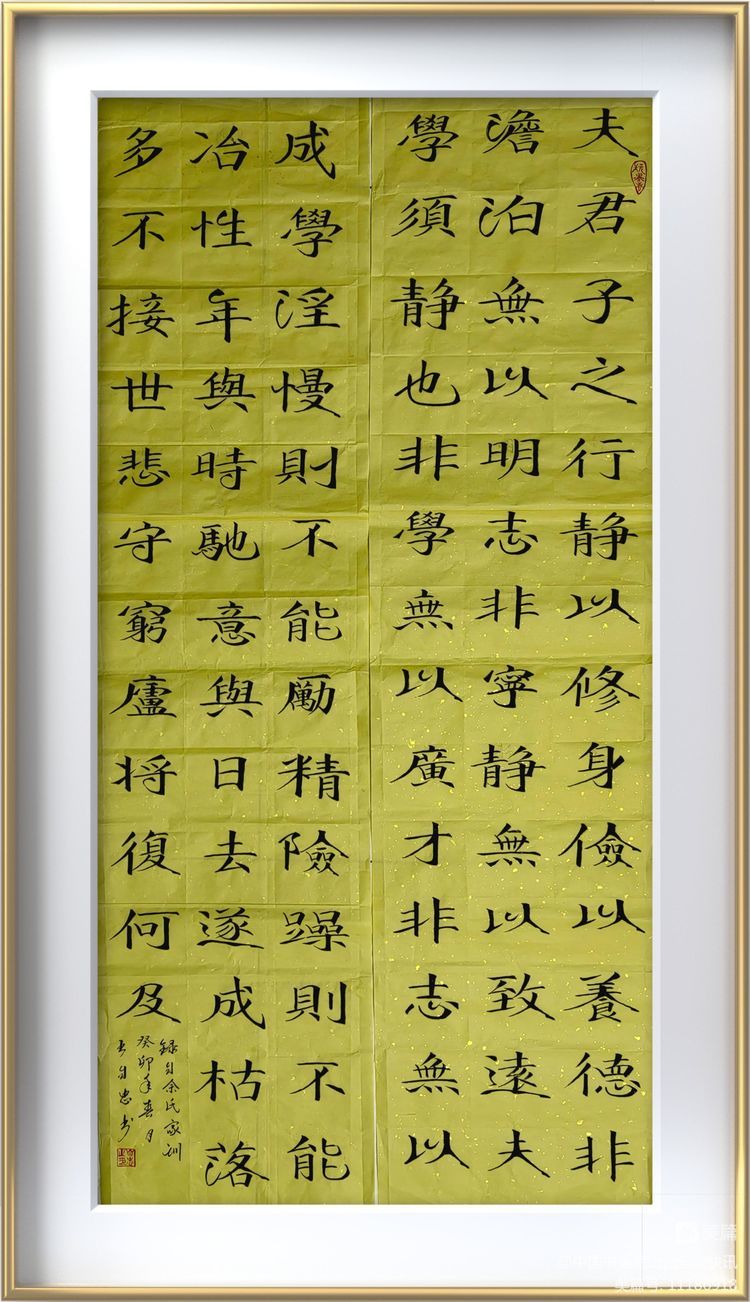 夫君子之行静以修身儉以養德非
澹泊無以明志非寧静無以致遠夫
學須静也非學無以廣才非志無以
成學淫慢則不能勵精險躁則不能
冶性年與時馳意與日去遂成枯落
多不接世悲守窮廬将復何及
録自余氏家训
癸卯年春月
自忠书
美篇